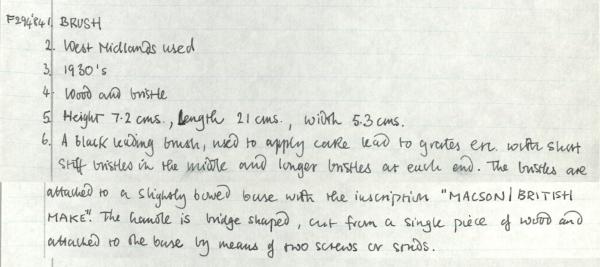 F294'84 1. BRUSH
2. West Midlands used
3. 1930's
4. Wood and bristle
5. Height 7.2 cms., Length 21 cms., width 5.3 cms.
6. A black leading brush, used to apply cake lead to grates etc. with short
stiff bristles in the middle and longer bristles at each end. The bristles are
attached to a slightly bowed base with the inscription "MACSON/BRITISH
MAKE". The handle is bridge shaped, cut from a single piece of wood and
attached to the base by means of two screws or studs.